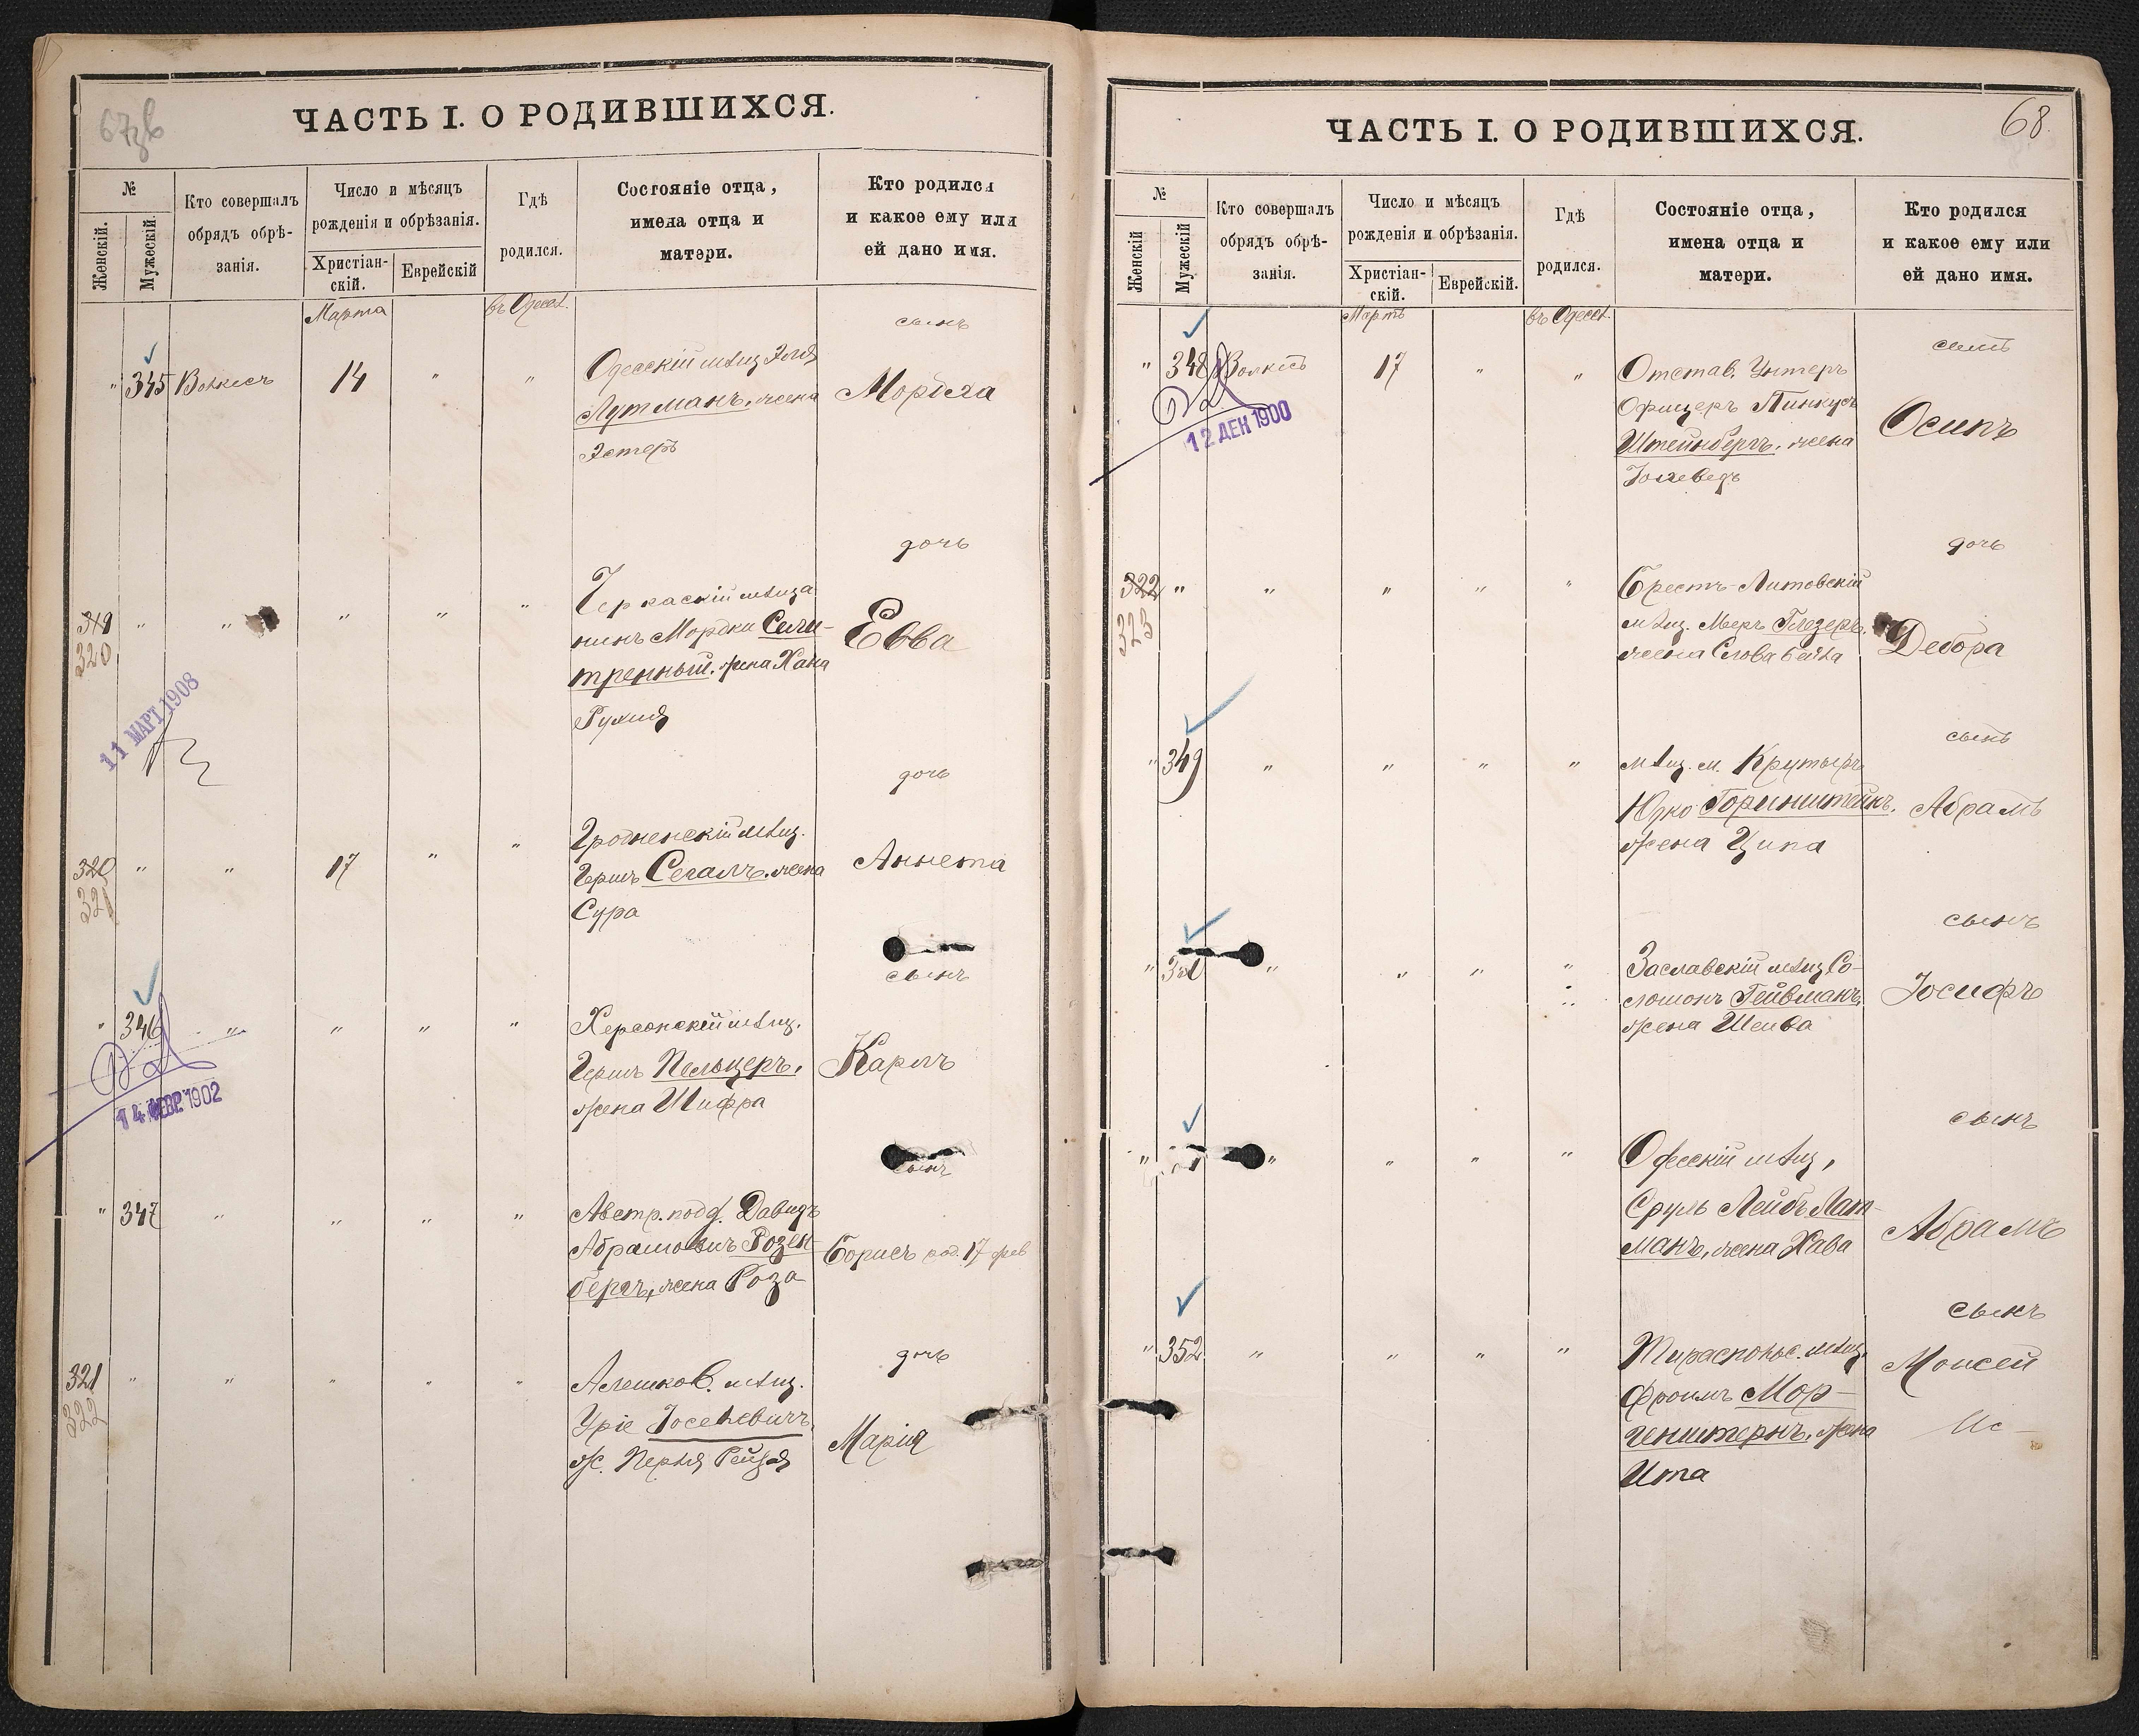 67 об
ЧАСТЬ I. О РОДИВШИХСЯ.
№
Женскій.
Мужескій.
Кто совершалъ
обрядъ обрѣ-
занія.
Число и мѣсяцъ
рожденія и обрѣзанія.
Христіан-
скій.
Еврейскій
Гдѣ
родился.
Состояніе отца,
имена отца и
матери.
Кто родился
и какое ему или
ей дано имя.
Марта
въ Одессѣ
сынъ
" 345 14 " "
Одесскій мѣщ.
Лутманъ, жена
Эстеръ
Мордха
дочь
319 " " " " "
320
Черкаскій мѣща
нинъ Мордки Сели-
тренный. жена Хана
Рухля
Евва
11 МАРТ 1908
дочь
320 " " 17 " "
321
Гродненскій мѣщ.
Гершъ Сегалъ. жена
Сура
Аннета
сынъ
" 346 " " " "
Херсонскій мѣщ.
Гершъ Пельцеръ,
жена Шифра
Карлъ
14 ФЕВР. 1902
сынъ
" 347 " " " "
Австр. подд. Давидъ
Абрамовичъ Розен-
бергъ, жена Роза
Борисъ род. 17 фев
дочь
321 " " " " "
322
Алешков. мѣщ.
Уріе Іосеѳевичъ,
ж. Перля Рейзя
Марія
68.
ЧАСТЬ I. О РОДИВШИХСЯ.
№
Женскій
Мужескій
Кто совершалъ
обрядъ обрѣ-
занія.
Число и мѣсяцъ
рожденія и обрѣзанія.
Христіан-
скій.
Еврейскій.
Гдѣ
родился.
Состояніе отца,
имена отца и
матери.
Кто родился
и какое ему или
ей дано имя.
Мартъ
въ Одессѣ
сынъ
" 348 17 " "
Отстав. Унтеръ
Офицеръ Пинкусъ
Штейнбергъ, жена
Іохеведъ
Осипъ
12 ДЕК 1900
дочь
322 " " " " "
323
Брестъ-Литовскій
мѣщ. Меръ Глезеръ,
жена Слова Бейла
Дебора
сынъ
" 349 " " " "
мѣщ. м. Крутыхъ
Юдко Горинштейнъ.
жена Ципа
Абрамъ
сынъ
" " " " "
Заславскій мѣщ. Со-
ломонъ Гейвманъ,
жена Шейва
Іосифъ
сынъ
" " " " "
Одесскій мѣщ,
Сруль Лейбъ Лат-
манъ, жена Хава
Абрамъ
сынъ
" 352 " " " "
Тираспольс. мѣщ.
Фроимъ Мор-
генштернъ, жена
Ита
Моисей
Ис